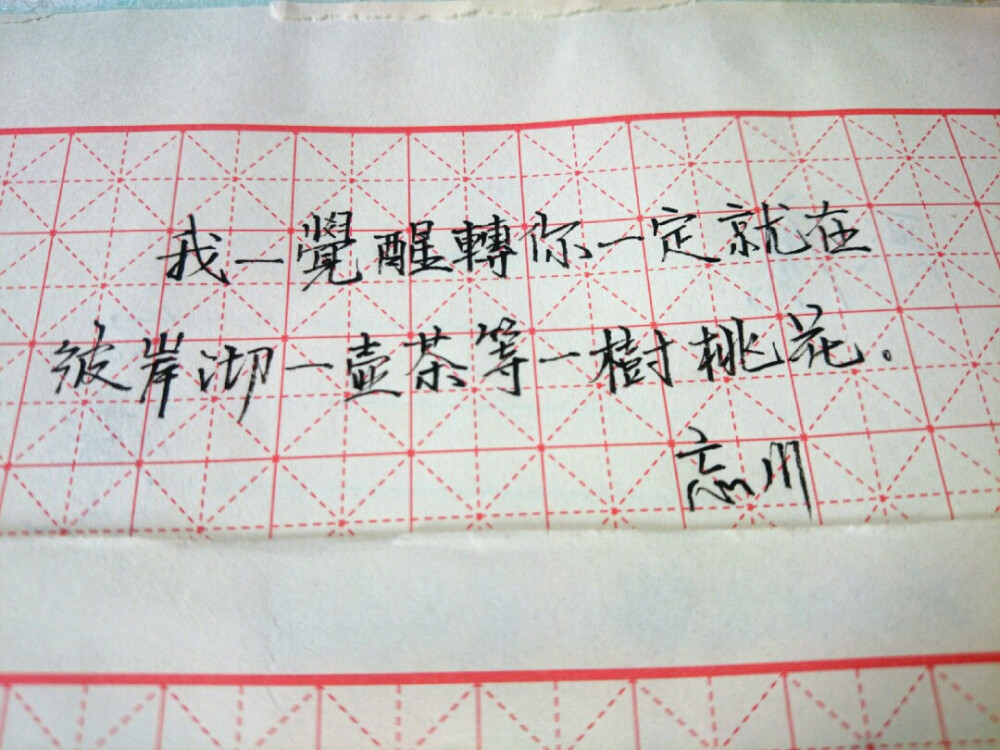 我一覺醒轉你一定就在
彼岸沏一壺茶等一樹桃花。
忘川